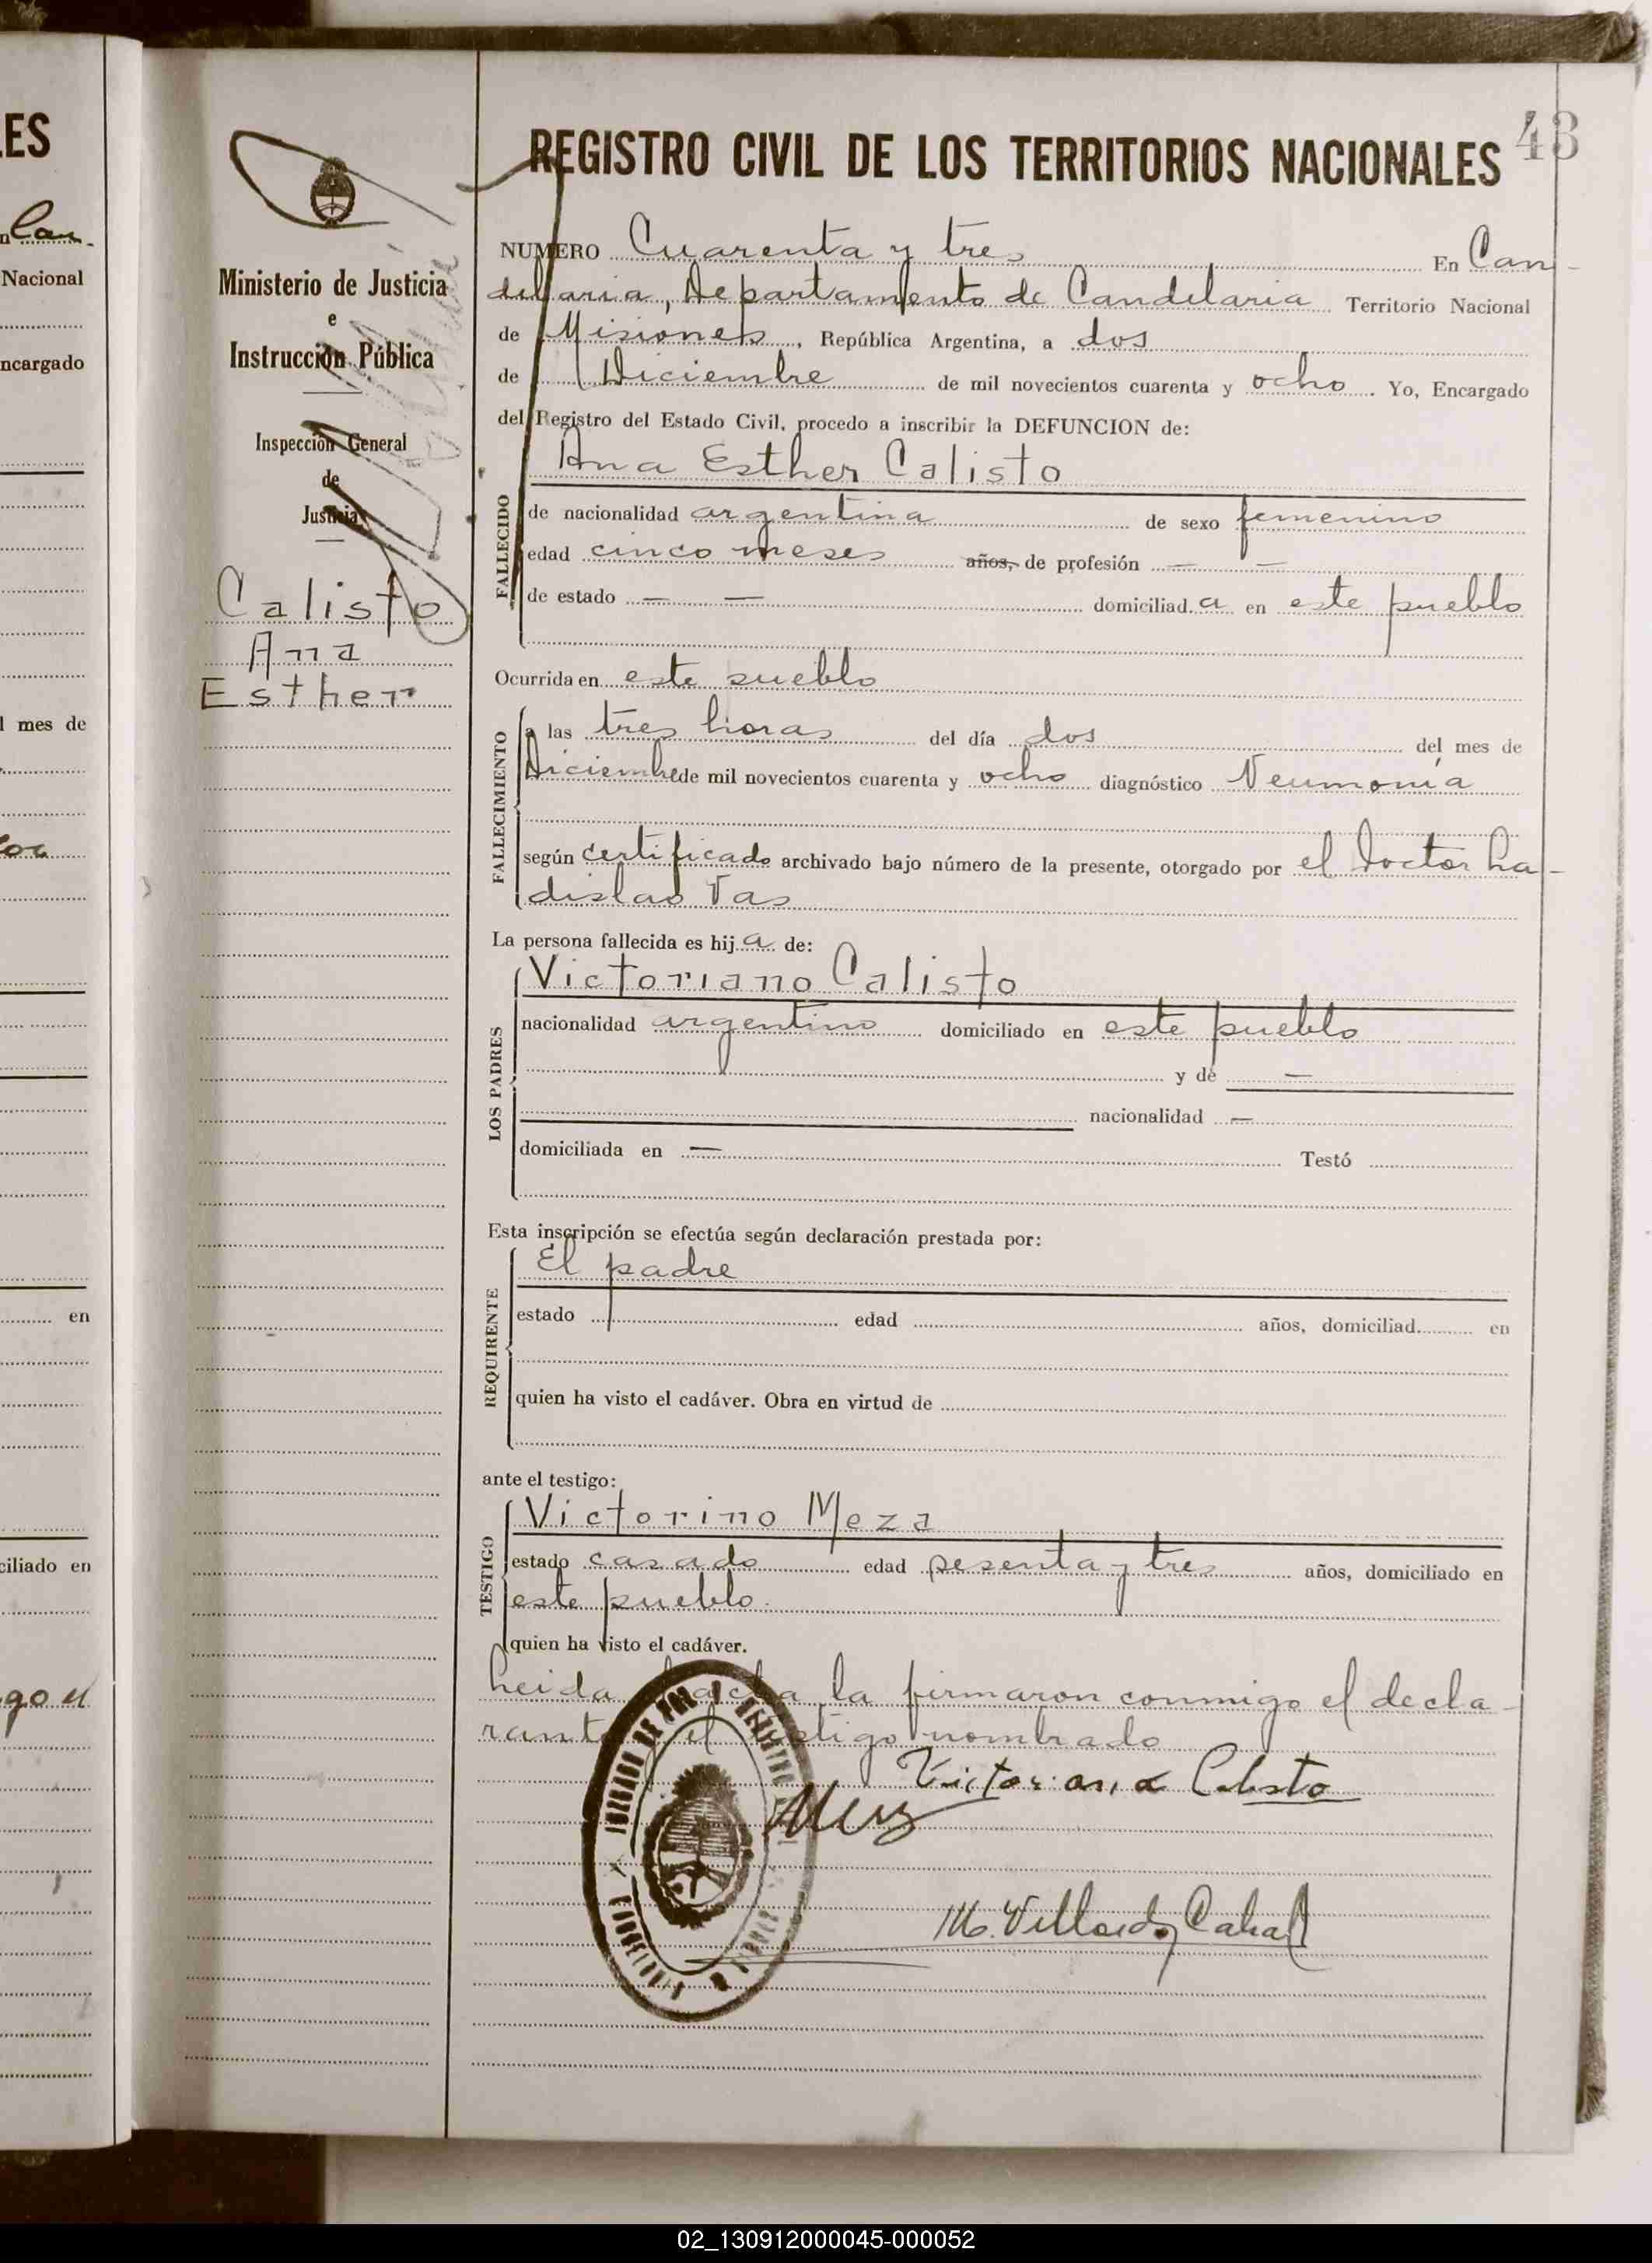 ES
Can-
Nacional
ncargado
l mes de
en
ciliado en
go el
Ministerio de Justicia
e
Instrucción Pública
Inspección General
de
Justicia
Calisto
Ana
Esther
43
REGISTRO CIVIL DE LOS TERRITORIOS NACIONALES
NUMERO Cuarenta y tres En Can-
delaria, Departamento de Candelaria Territorio Nacional
de Misiones, República Argentina, a dos
de Diciembre de mil novecientos cuarenta y ocho. Yo, Encargado
del Registro del Estado Civil, procedo a inscribir la DEFUNCION de:
Ana Esther Calisto
FALLECIDO
de nacionalidad argentina de sexo femenino
edad cinco meses años, de profesión — —
de estado — — domiciliad a en este pueblo
Ocurrida en este pueblo
FALLECIMIENTO
a las tres horas del día dos del mes de
Diciembre de mil novecientos cuarenta y ocho diagnóstico Neumonía
según certificado archivado bajo número de la presente, otorgado por el Doctor La-
dislao Vas
La persona fallecida es hij a de:
LOS PADRES
Victoriano Calisto
nacionalidad argentino domiciliado en este pueblo
y de —
nacionalidad —
domiciliada en — Testó
Esta inscripción se efectúa según declaración prestada por:
REQUIRENTE
El padre
estado edad años, domiciliad en
quien ha visto el cadáver. Obra en virtud de
ante el testigo:
TESTIGO
Victorino Meza
estado casado edad sesenta y tres años, domiciliado en
este pueblo.
quien ha visto el cadáver.
Leida el acta la firmaron conmigo el decla-
rante y el testigo nombrado
Victoriano Calisto
M. Villordo Cabral
02_130912000045-000052